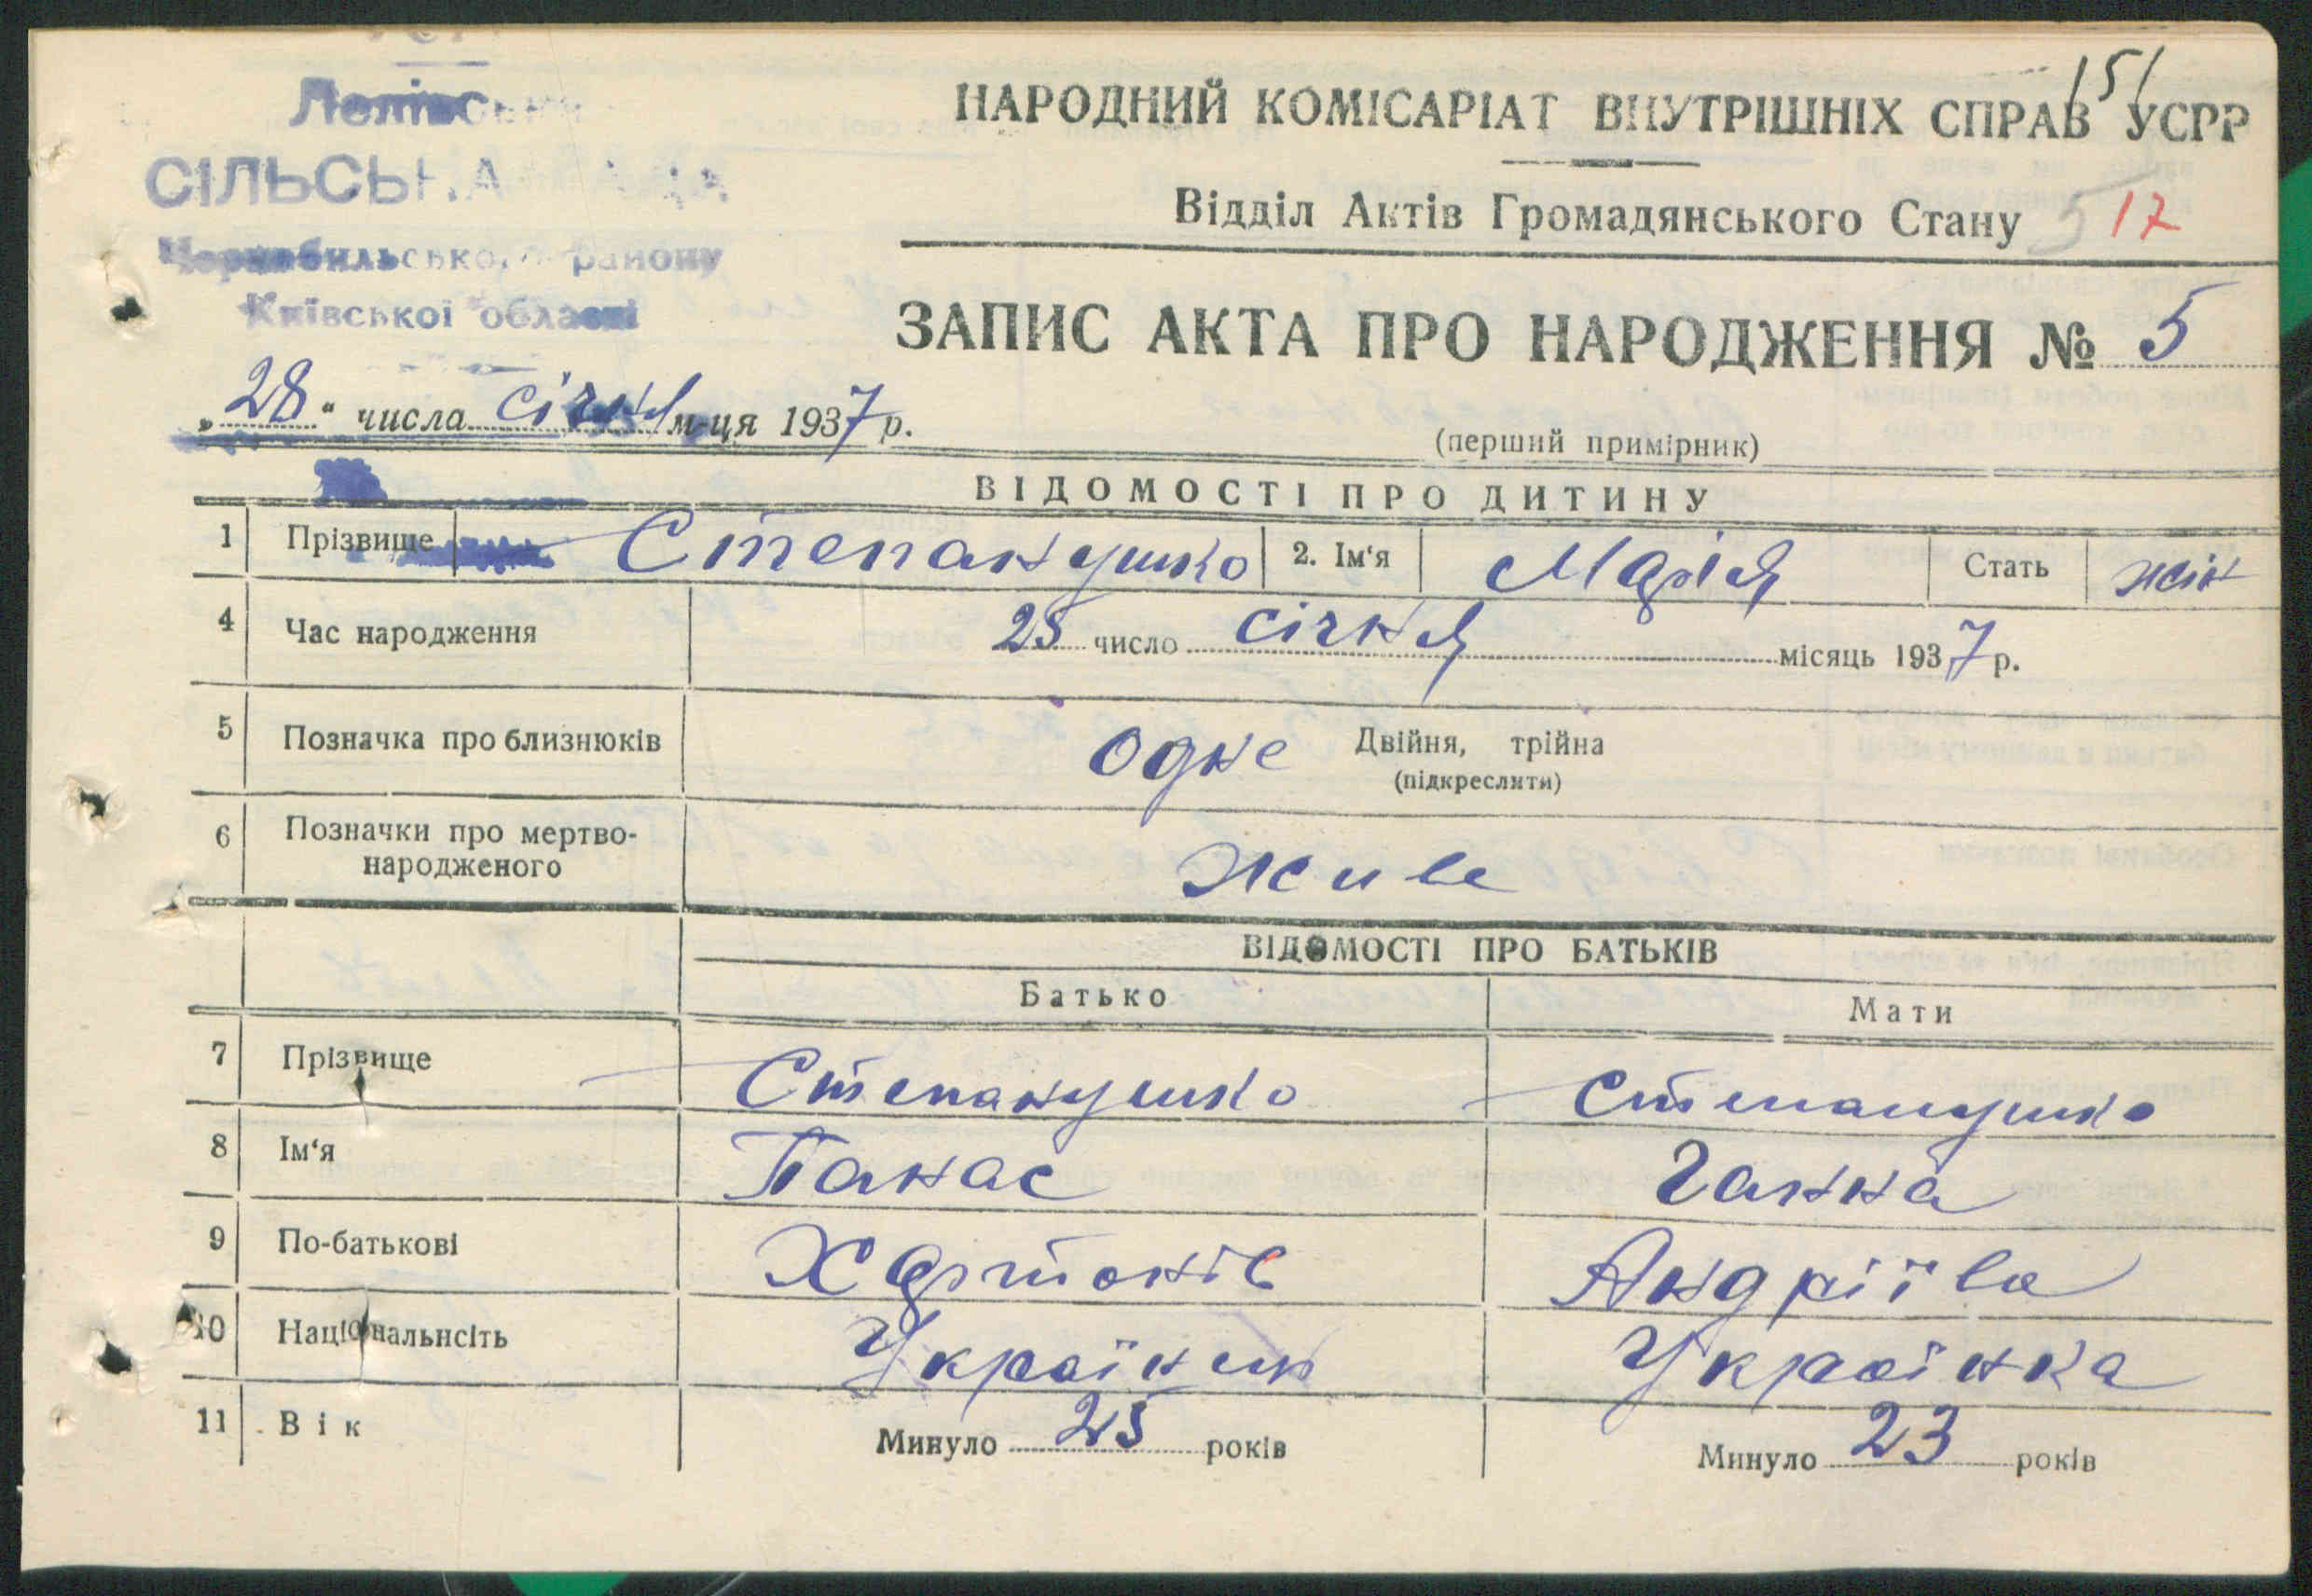 151
НАРОДНИЙ КОМІСАРІАТ ВНУТРІШНІХ СПРАВ УСРР
Відділ Актів Громадянського Стану 5 17
СІЛЬСЬКА
Чорнобильського району
Київської області
ЗАПИС АКТА ПРО НАРОДЖЕННЯ № 5
„28“ числа січня м-ця 1937 р.
(перший примірник)
ВІДОМОСТІ ПРО ДИТИНУ
1 Прізвище Степанушко 2. Ім‘я Марія Стать жін
4 Час народження 25 число січня місяць 1937 р.
5 Позначка про близнюків одне Двійня, трійна
(підкреслити)
6 Позначки про мертво-
народженого живе
ВІДОМОСТІ ПРО БАТЬКІВ
Батько Мати
7 Прізвище Степанушко Степанушко
8 Ім‘я Панас Ганна
9 По-батькові Хартонів Андріїва
10 Національнсіть Українин Українка
11 Вік Минуло 25 років Минуло 23 років